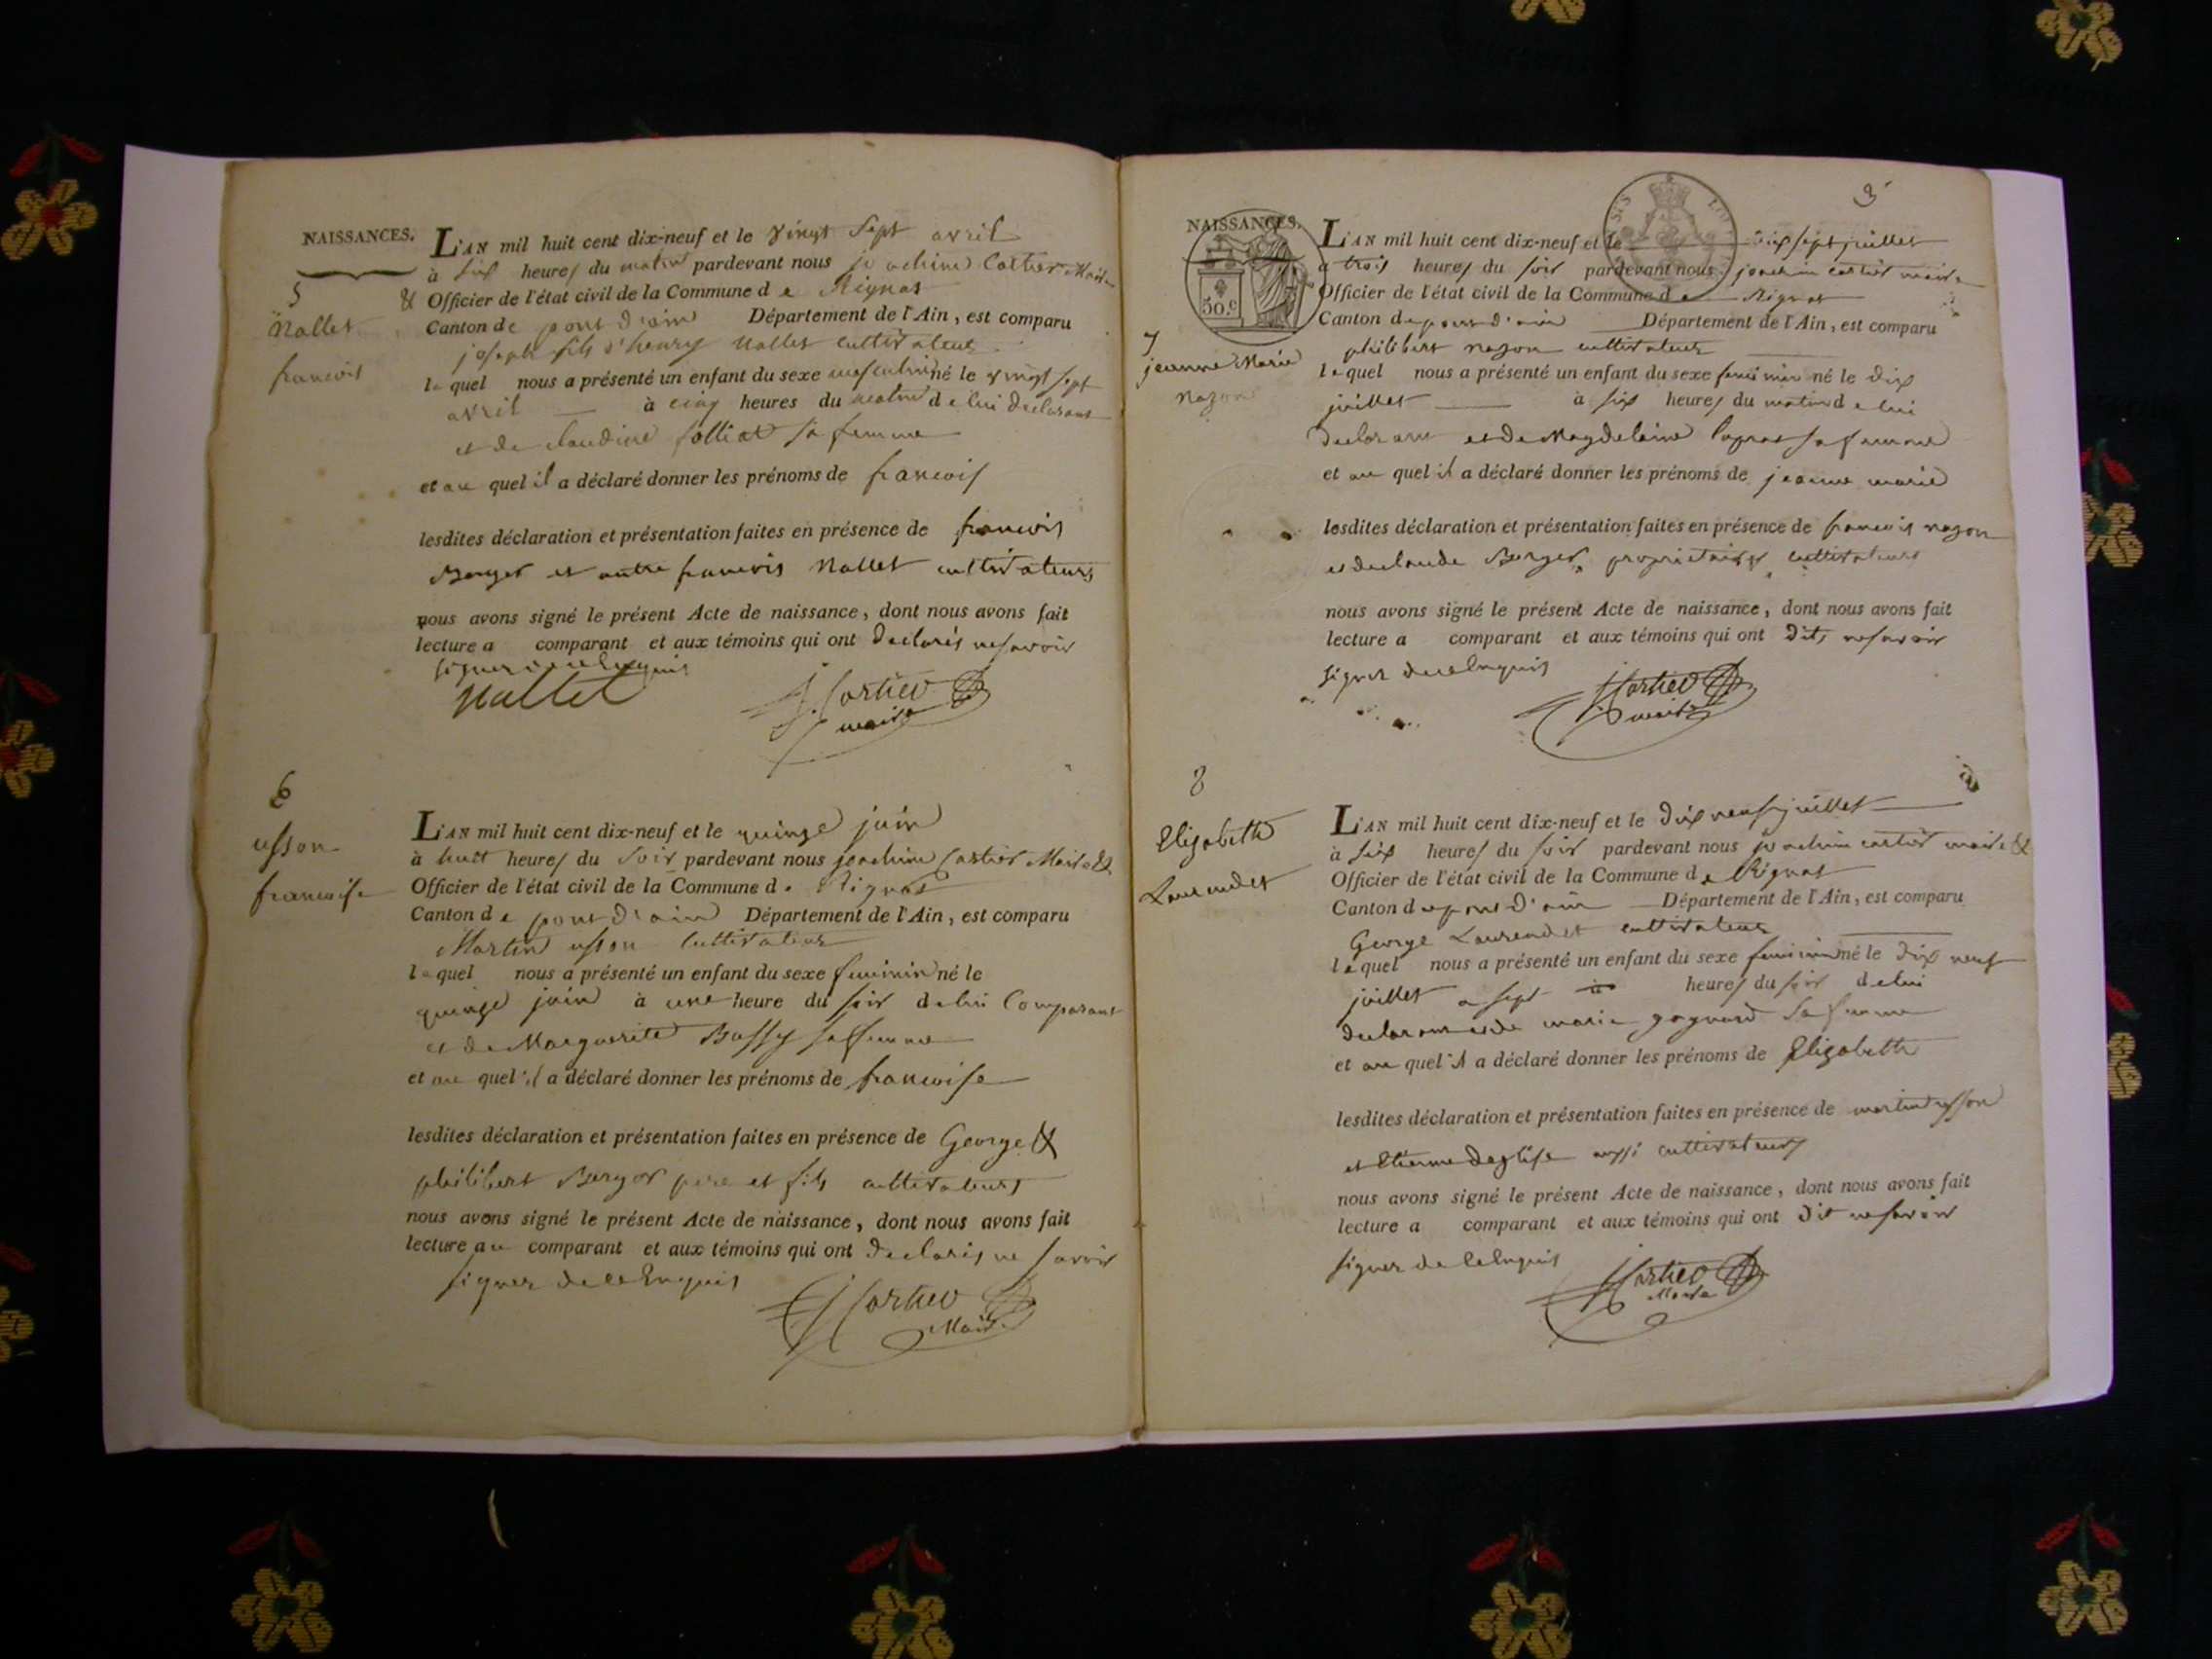 NAISSANCES.
5
Nallet
francois
L'AN mil huit cent dix-neuf et le vingt sept avril
à six heures du matin pardevant nous joachim Cartier Maire
& Officier de l'état civil de la Commune de Rignat
Canton de pont d'ain Département de l'Ain, est comparu
joseph fils d'henry Nallet cultivateur
lequel nous a présenté un enfant du sexe masculin né le vingt sept
avril à cinq heures du matin de lui declarant
et de claudine folliat sa femme
et au quel il a déclaré donner les prénoms de francois
lesdites déclaration et présentation faites en présence de francois
Berger et autre francois Nallet cultivateurs
nous avons signé le présent Acte de naissance, dont nous avons fait
lecture a comparant et aux témoins qui ont declarés ne savoir
signer de ce Enquis
Nallet
J Cartier
maire
6
usson
francoise
L'AN mil huit cent dix-neuf et le quinze juin
à huit heures du soir pardevant nous joachim Cartier Maire &
Officier de l'état civil de la Commune de Rignat
Canton de pont d'ain Département de l'Ain, est comparu
Martin usson Cultivateur
lequel nous a présenté un enfant du sexe feminin né le
quinze juin à une heure du soir de lui Comparant
et de Marguerite Bussy sa femme
et au quel il a déclaré donner les prénoms de francoise
lesdites déclaration et présentation faites en présence de George &
philibert Berger pere et fils cultivateurs
nous avons signé le présent Acte de naissance, dont nous avons fait
lecture au comparant et aux témoins qui ont declarés ne savoir
signer de ce Enquis
J Cartier
Maire
3
NAISSANCES.
50.c
7
jeanne Marie
Nazon
L'AN mil huit cent dix-neuf et le dix sept juillet
a trois heures du soir pardevant nous joachim cartier maire
Officier de l'état civil de la Commune de Rignat
Canton de pont d'ain Département de l'Ain, est comparu
philibert nazon cultivateur
lequel nous a présenté un enfant du sexe feminin né le dix
juillet à six heures du matin de lui
declarant et de Magdelaine sa femme
et au quel il a déclaré donner les prénoms de jeanne marie
lesdites déclaration et présentation faites en présence de francois nazon
et de claude Berger proprietaires cultivateurs
nous avons signé le présent Acte de naissance, dont nous avons fait
lecture a comparant et aux témoins qui ont dits ne savoir
signer de ce Enquis
J Cartier
maire
8
Elizabeth
Laurendet
L'AN mil huit cent dix-neuf et le dix neuf juillet
à six heures du soir pardevant nous joachim cartier maire &
Officier de l'état civil de la Commune de Rignat
Canton de pont d'ain Département de l'Ain, est comparu
George Laurendet cultivateur
lequel nous a présenté un enfant du sexe feminin né le dix neuf
juillet a sept à heures du soir de lui
declarant et de marie gognard sa femme
et au quel il a déclaré donner les prénoms de Elizabeth
lesdites déclaration et présentation faites en présence de martin usson
et Etienne deglise aussi cultivateurs
nous avons signé le présent Acte de naissance, dont nous avons fait
lecture a comparant et aux témoins qui ont dit ne savoir
signer de ce Enquis
J Cartier
Maire